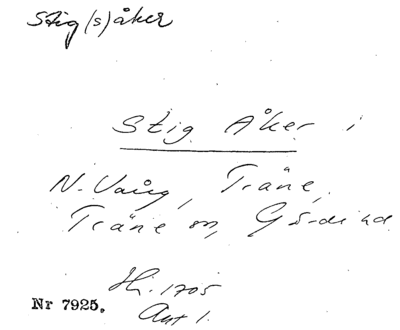 Stig(s)åker
Stig Åker i
N. Vång, Träne,
Träne sn, Gärds hd
Hi. 1705
Akt 1.
Nr 7925.